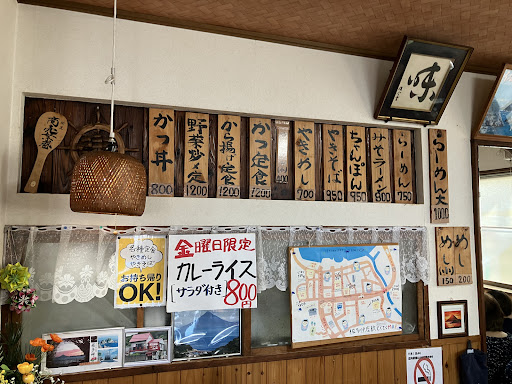 味
かつ丼
800
野菜炒め定
1200
から揚げ定食
1200
かつ定食
1200
やきめし
700
やきそば
950
ちゃんぽん
950
みそラーメン
950
らーめん
750
らーめん大
1000
めし(小)
150
めし
200
各種定食
やきめし
やきそば
お持ち帰り
OK!
金曜日限定
カレーライス
サラダ付き
800円